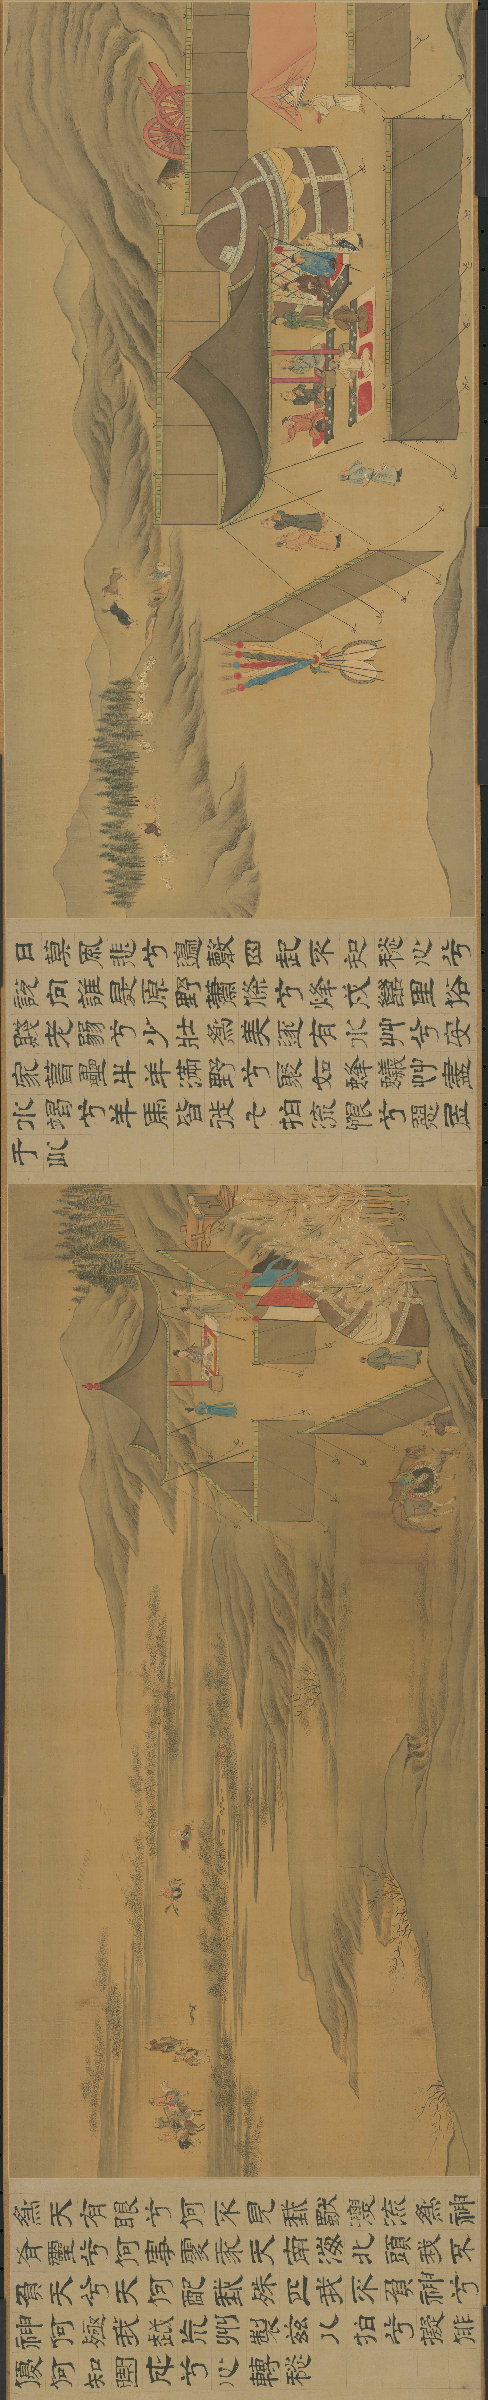 日莫風悲兮邊聲四起不知愁心兮
說向誰是原野蕭條兮烽戍萬里俗
賤老弱兮少壯為美逐有水艸兮安
家葺壘牛羊滿野兮聚如蜂蟻艸盡
水竭兮羊馬皆徙七拍流恨兮惡居
于此
為天有眼兮何不見我獨漂流為神
有靈兮何事處我天南海北頭我不
負天兮天何配我殊匹我不負神兮
神何殛我越荒州製茲八拍兮擬俳
優何知曲成兮心轉愁